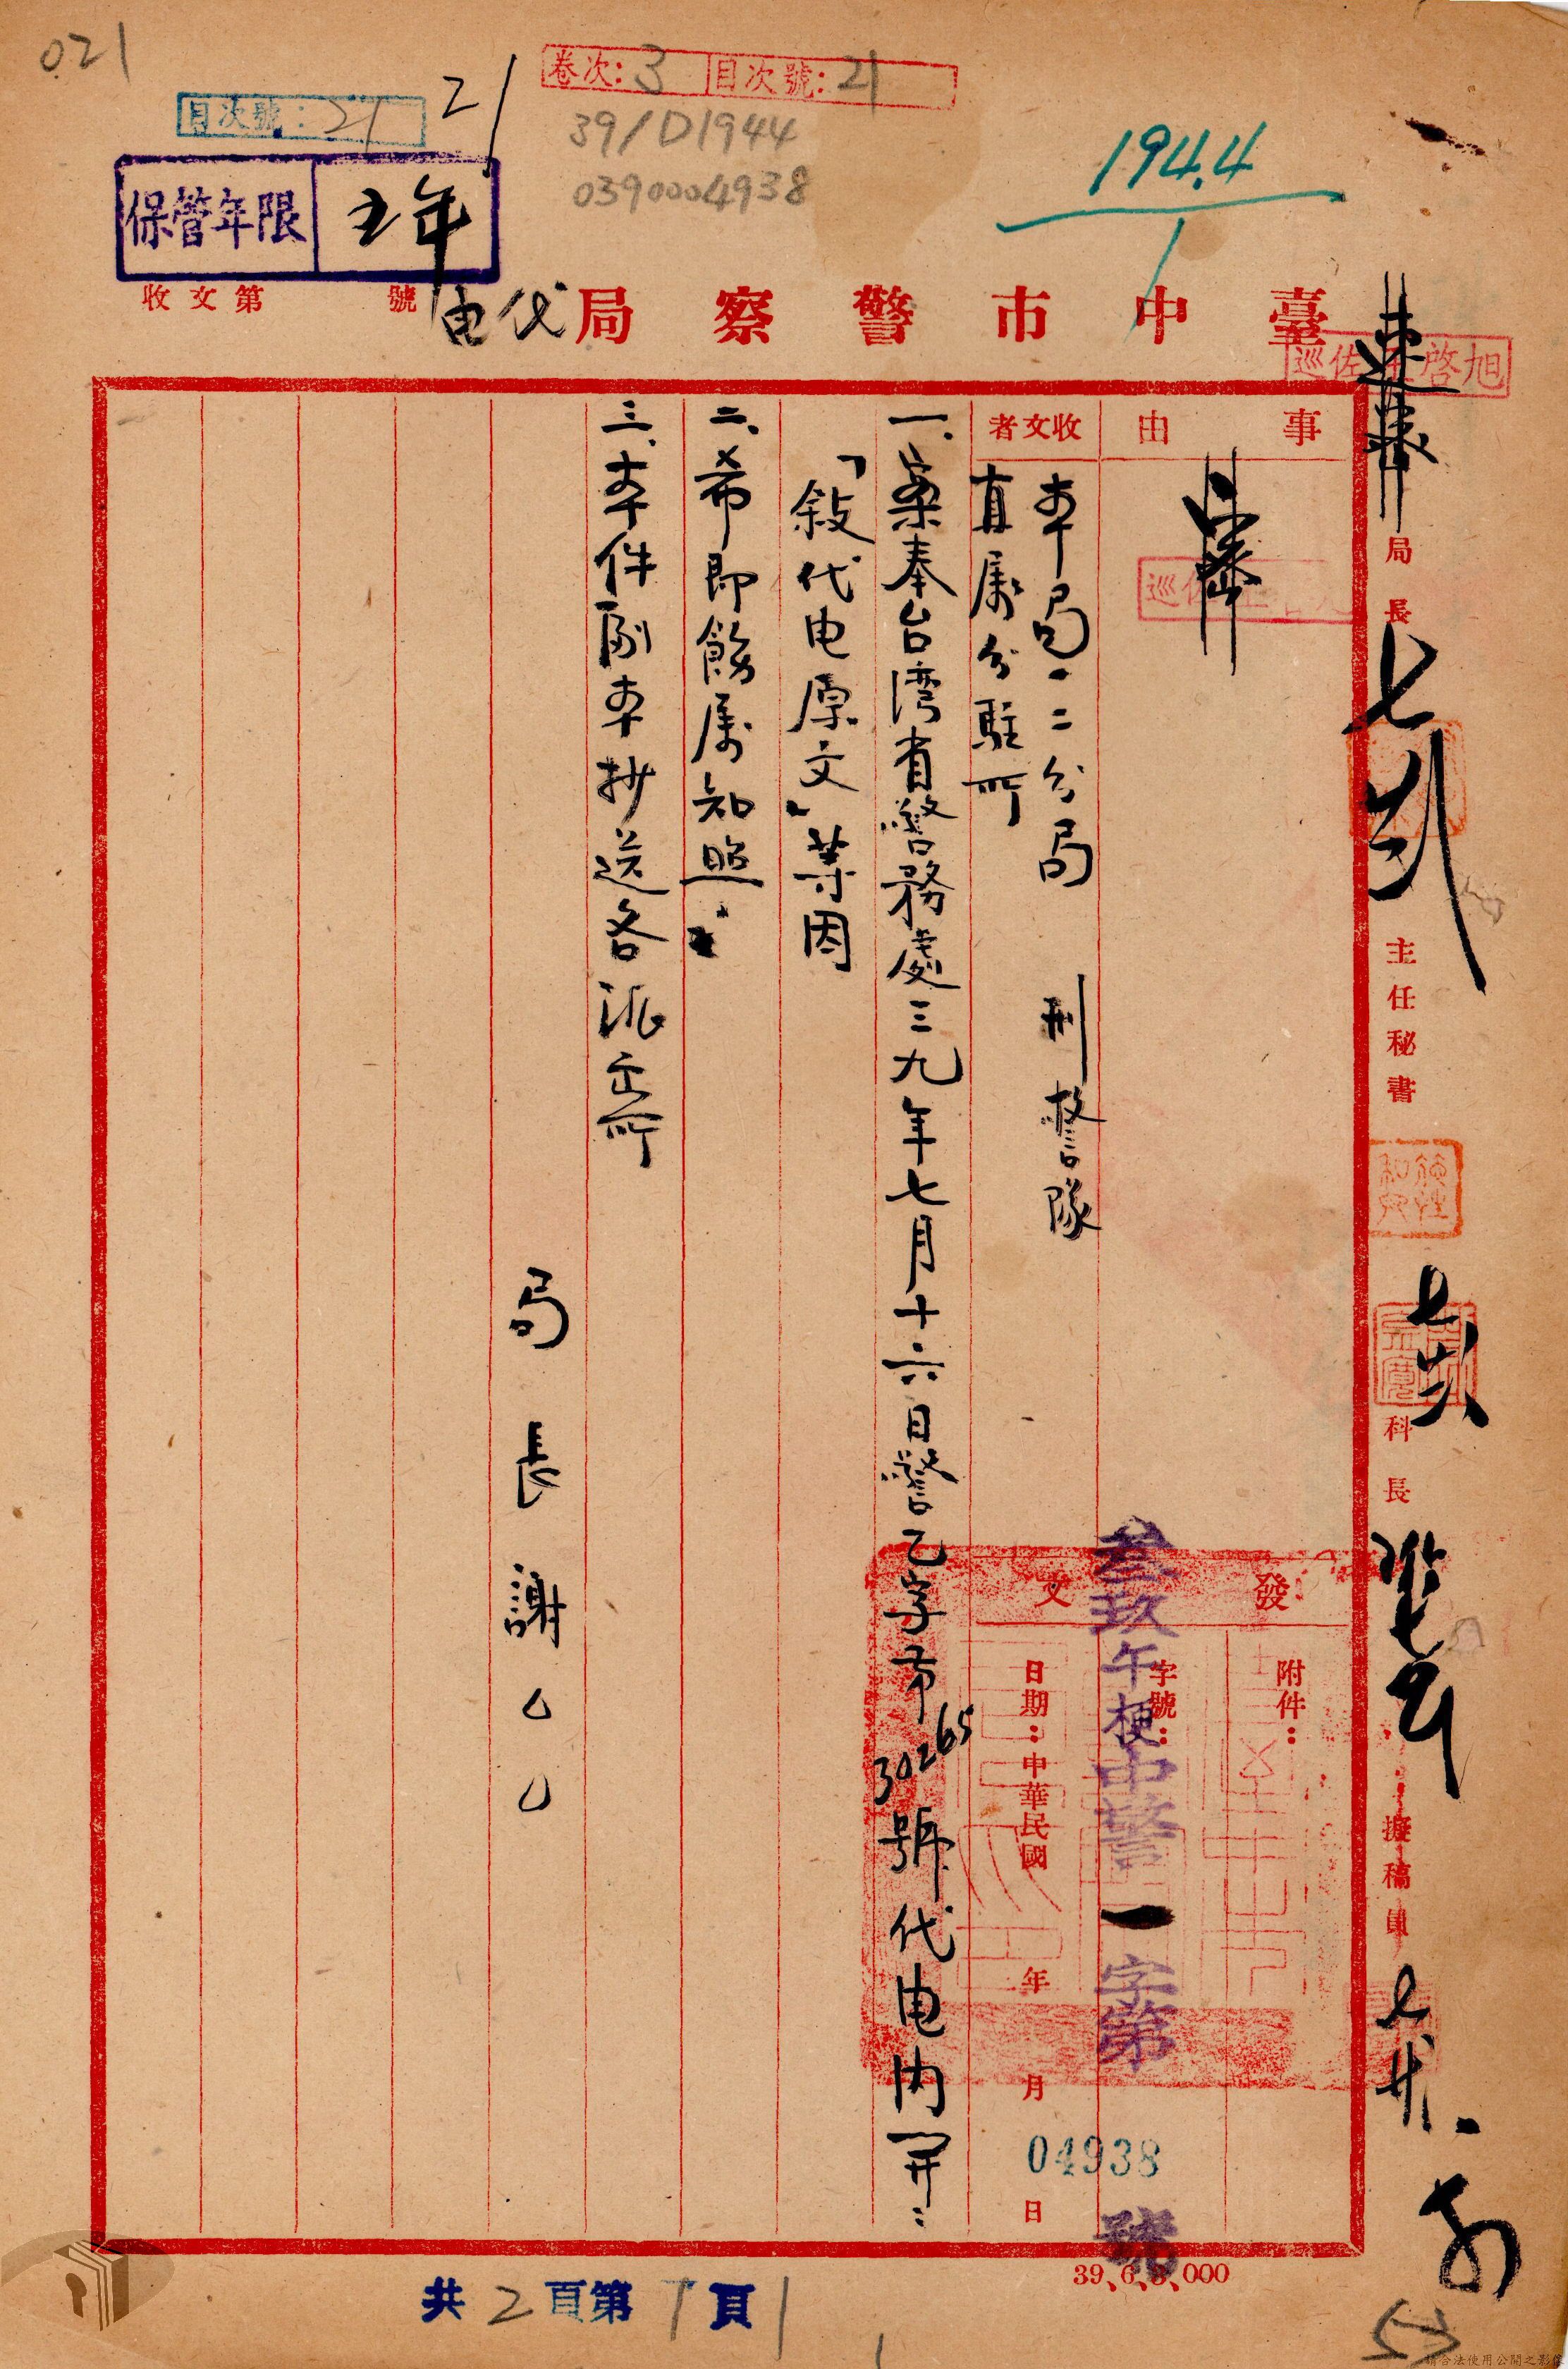 021
卷次:3 目次號:21
目次號:21
21
39/D1944
0390004938
194.4
1
保管年限 五年
臺中市警察局代电
收文第 號
事由
收文者
本局一、二分局 刑警隊
直属分駐所
一、案奉台湾省警務處三九年七月十六日警乙字苐30265號代电内開:
「敍代电原文」等因
二、希即飭属知照。
三、本件副本抄送各派出所
局長謝
發文
附件:
字號:
叁玖午梗中警一字第 號
04938
日期:中華民國 年 月 日
局長
主任秘書
科長
擬稿員
39、6、3、000
共2頁第1頁
1